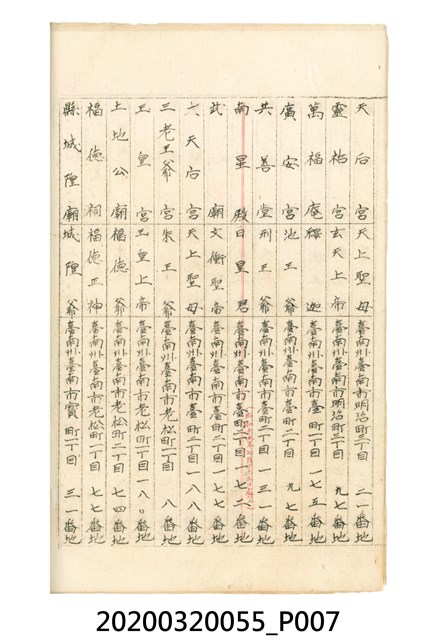 天后宮 天上聖母 臺南州臺南市明治町三丁目 二一番地
靈祐宮 玄天上帝 臺南州臺南市明治町三丁目 九七番地
萬福庵 釋迦 臺南州臺南市臺町一丁目 一七五番地
廣安宮 池王爺 臺南州臺南市臺町二丁目 九七番地
共善堂 刑王爺 臺南州臺南市臺町二丁目 一三一番地
南星殿 日星君 臺南州臺南市臺町二丁目 一七二番地
武廟 文衡聖帝 臺南州臺南市臺町二丁目 一七七番地
六天后宮 天上聖母 臺南州臺南市臺町二丁目 一八八番地
三老王爺宮 朱王爺 臺南州臺南市老松町二丁目 八番地
玉皇宮 玉皇上帝 臺南州臺南市老松町二丁目 一八〇番地
土地公廟 福德爺 臺南州臺南市老松町二丁目 七四番地
福德祠 福德正神 臺南州臺南市老松町二丁目 七七番地
縣城隍廟 城隍爺 臺南州臺南市寶町二丁目 三一番地
20200320055_P007